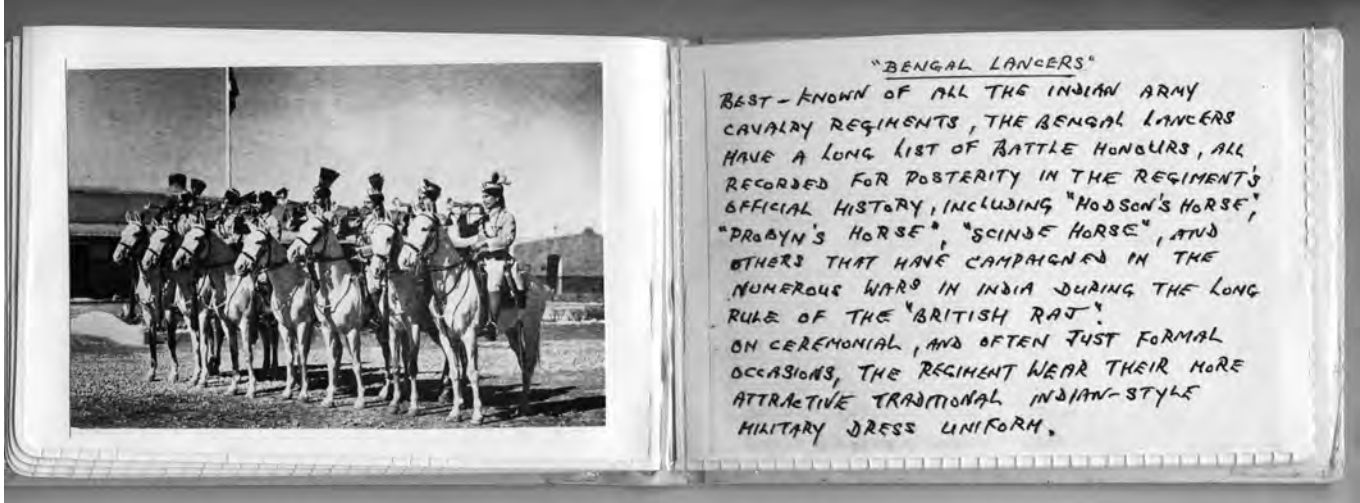 "BENGAL LANCERS"
BEST-KNOWN OF ALL THE INDIAN ARMY
CAVALRY REGIMENTS, THE BENGAL LANCERS
HAVE A LONG LIST OF BATTLE HONOURS, ALL
RECORDED FOR POSTERITY IN THE REGIMENT'S
OFFICIAL HISTORY, INCLUDING "HODSON'S HORSE",
"PROBYN'S HORSE", "SCINDE HORSE", AND
OTHERS THAT HAVE CAMPAIGNED IN THE
NUMEROUS WARS IN INDIA DURING THE LONG
RULE OF THE "BRITISH RAJ".
ON CEREMONIAL, AND OFTEN JUST FORMAL
OCCASIONS, THE REGIMENT WEAR THEIR MORE
ATTRACTIVE TRADITIONAL INDIAN-STYLE
MILITARY DRESS UNIFORM.